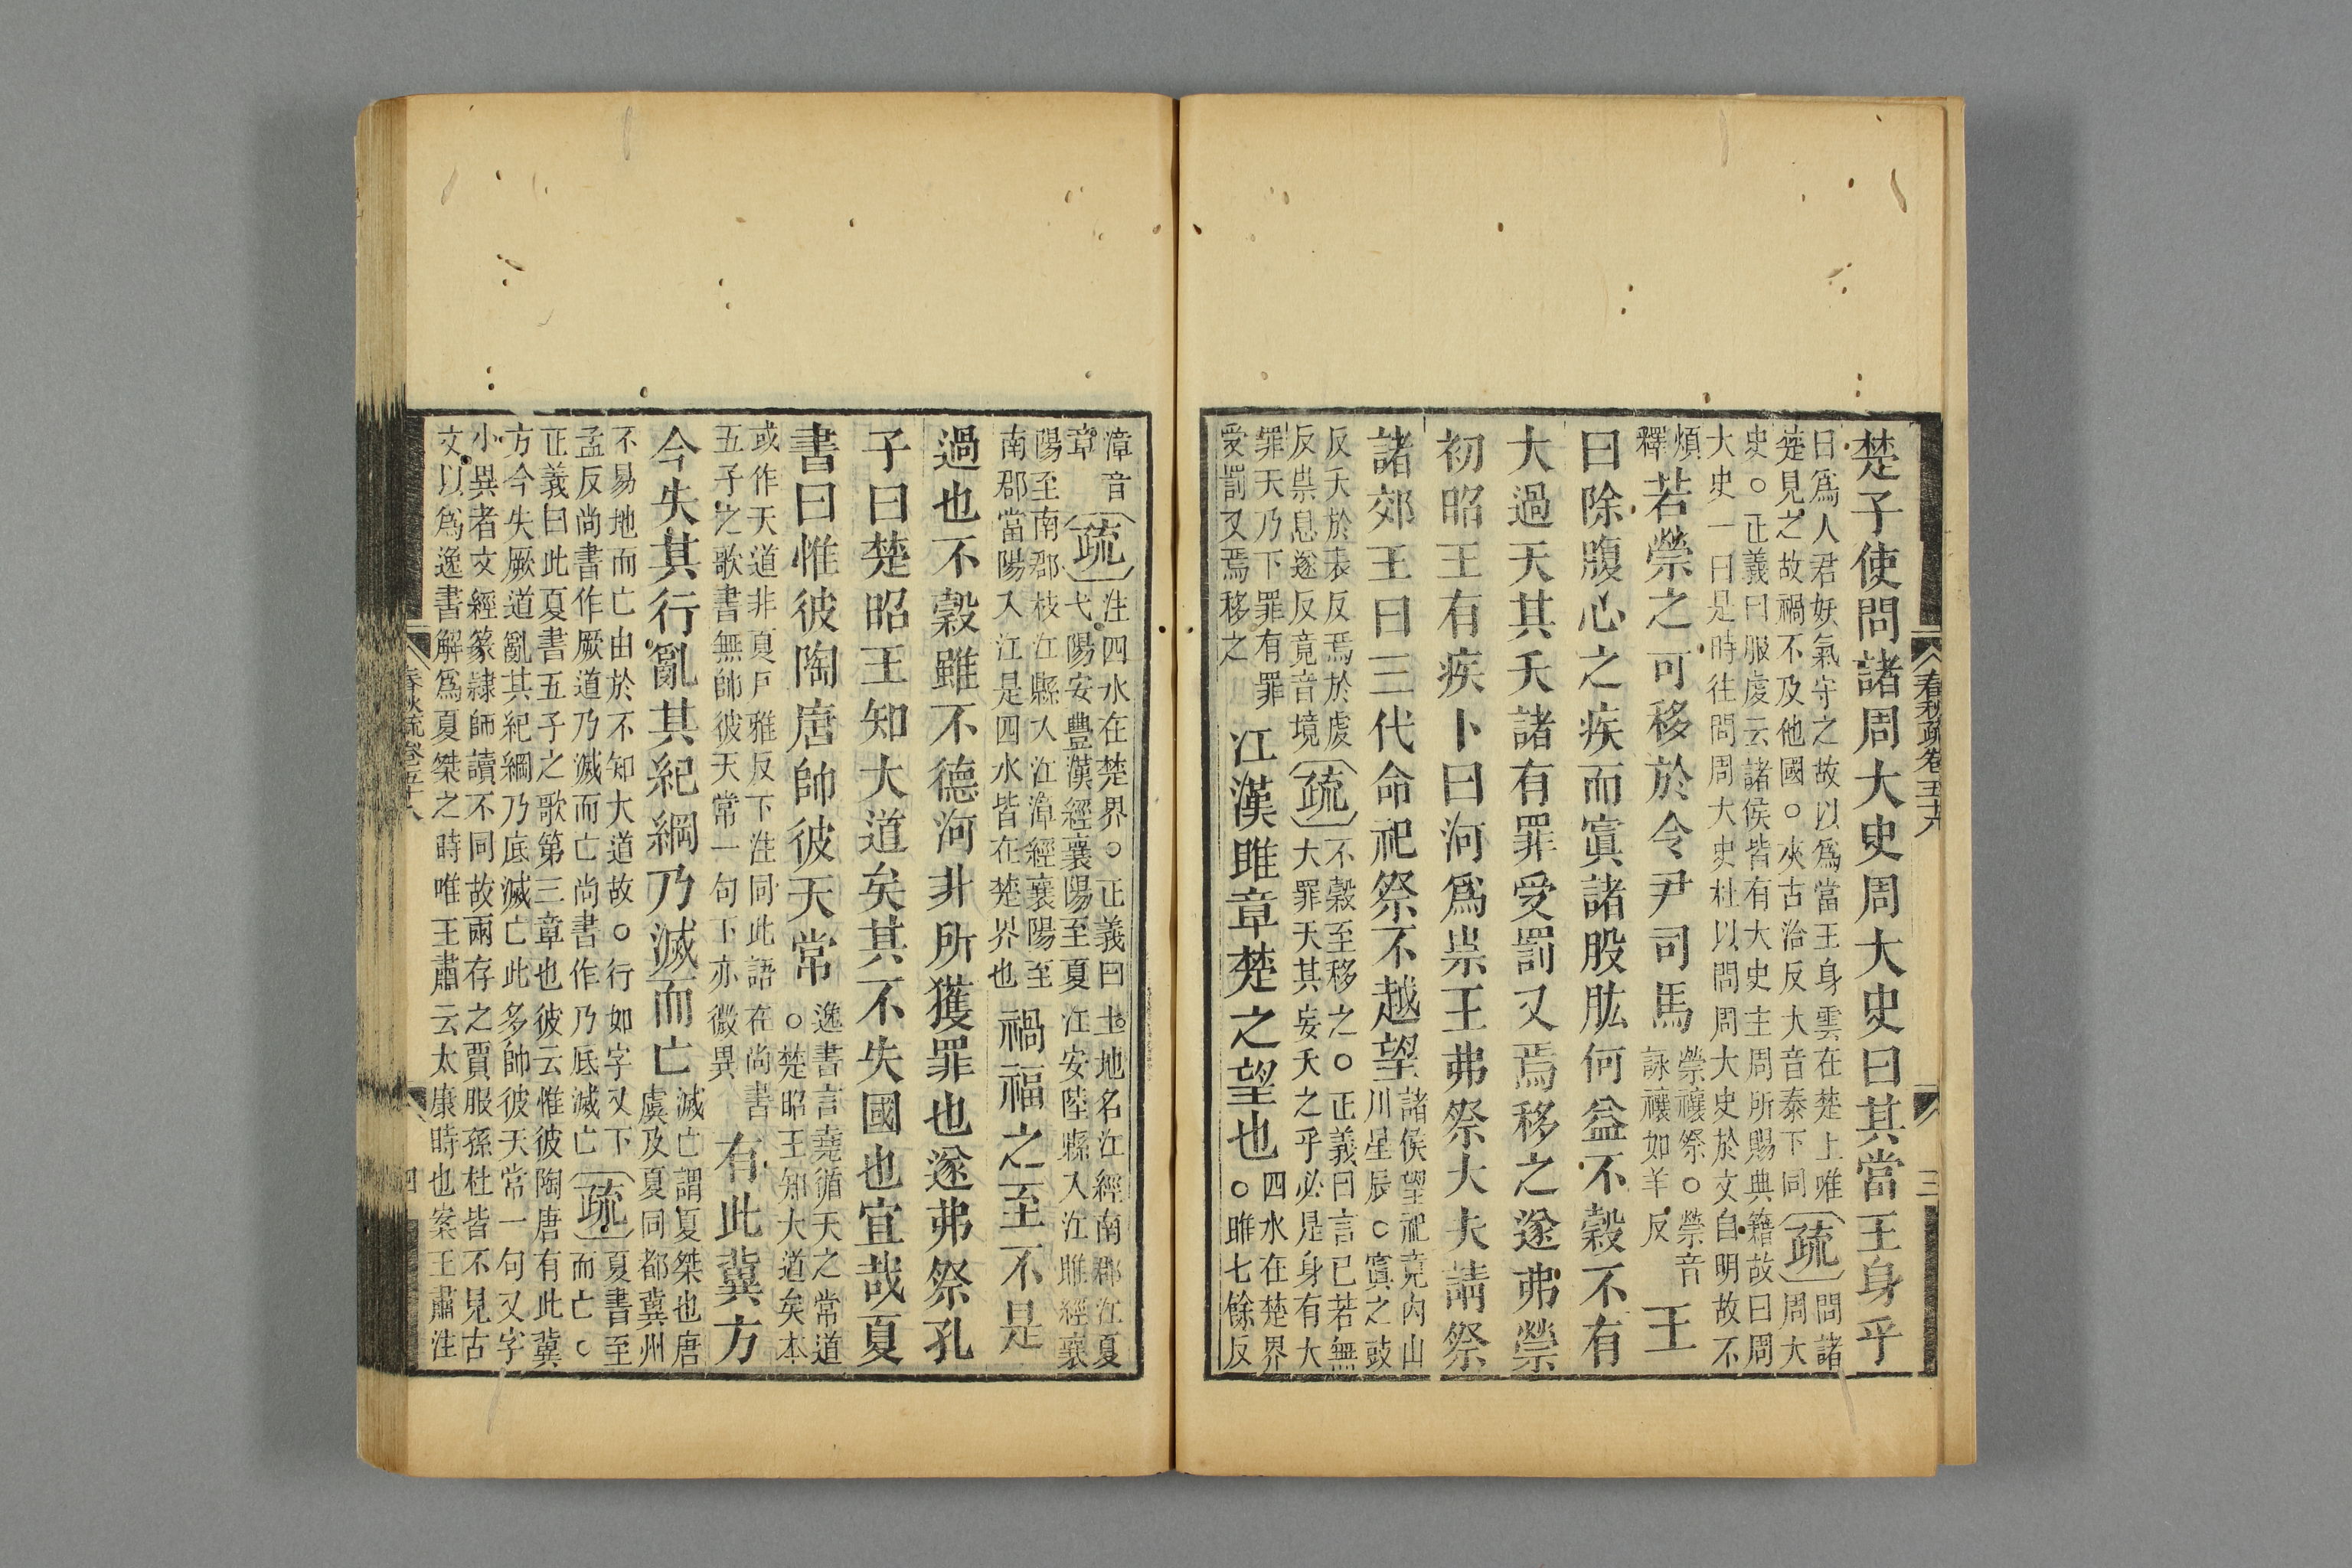 春秋疏卷五十八 三
楚子使問諸周大史周大史曰其當王身乎
日爲人君妖氣守之故以爲當王身雲在楚上唯
楚見之故禍不及他國○夾古洽反大音泰下同
疏
問諸
周大
史○正義曰服虔云諸侯皆有大史主周所賜典籍故曰周
大史一曰是時往問周大史杜以問周大史於文自明故不
煩
釋
若禜之可移於令尹司馬
禜禳祭○禜音
詠禳如羊反
王
曰除腹心之疾而寘諸股肱何益不穀不有
大過天其夭諸有罪受罰又焉移之遂弗禜
初昭王有疾卜曰河爲祟王弗祭大夫請祭
諸郊王曰三代命祀祭不越望
諸侯望祀竟內山
川星辰○寘之豉
反夭於表反焉於虔
反祟息遂反竟音境
疏
不穀至移之○正義曰言已若無
大罪天其妄夭之乎必是身有大
罪天乃下罪有罪
受罰又焉移之
江漢雎章楚之望也
四水在楚界
○雎七餘反
漳音
章
疏
注四水在楚界○正義曰土地名江經南郡江夏
弋陽安豐漢經襄陽至夏江安陸縣入江雎經襄
陽至南郡枝江縣入江漳經襄陽至
南郡當陽入江是四水皆在楚界也
禍福之至不是
過也不穀雖不德河非所獲罪也遂弗祭孔
子曰楚昭王知大道矣其不失國也宜哉夏
書曰惟彼陶唐帥彼天常
逸書言堯循天之常道
○楚昭王知大道矣本
或作天道非夏戶雅反下注同此語在尚書
五子之歌書無帥彼天常一句下亦微異
有此冀方
今失其行亂其紀綱乃滅而亡
滅亡謂夏桀也唐
虞及夏同都冀州
不易地而亡由於不知大道故○行如字又下
孟反尚書作厥道乃滅而亡尚書作乃厎滅亡
疏
夏書至
而亡○
正義曰此夏書五子之歌第三章也彼云惟彼陶唐有此冀
方今失厥道亂其紀綱乃厎滅亡此多帥彼天常一句又字
小異者文經篆隸師讀不同故兩存之賈服孫杜皆不見古
文以爲逸書解爲夏桀之時唯王肅云太康時也案王肅注
春秋疏卷五十八 四